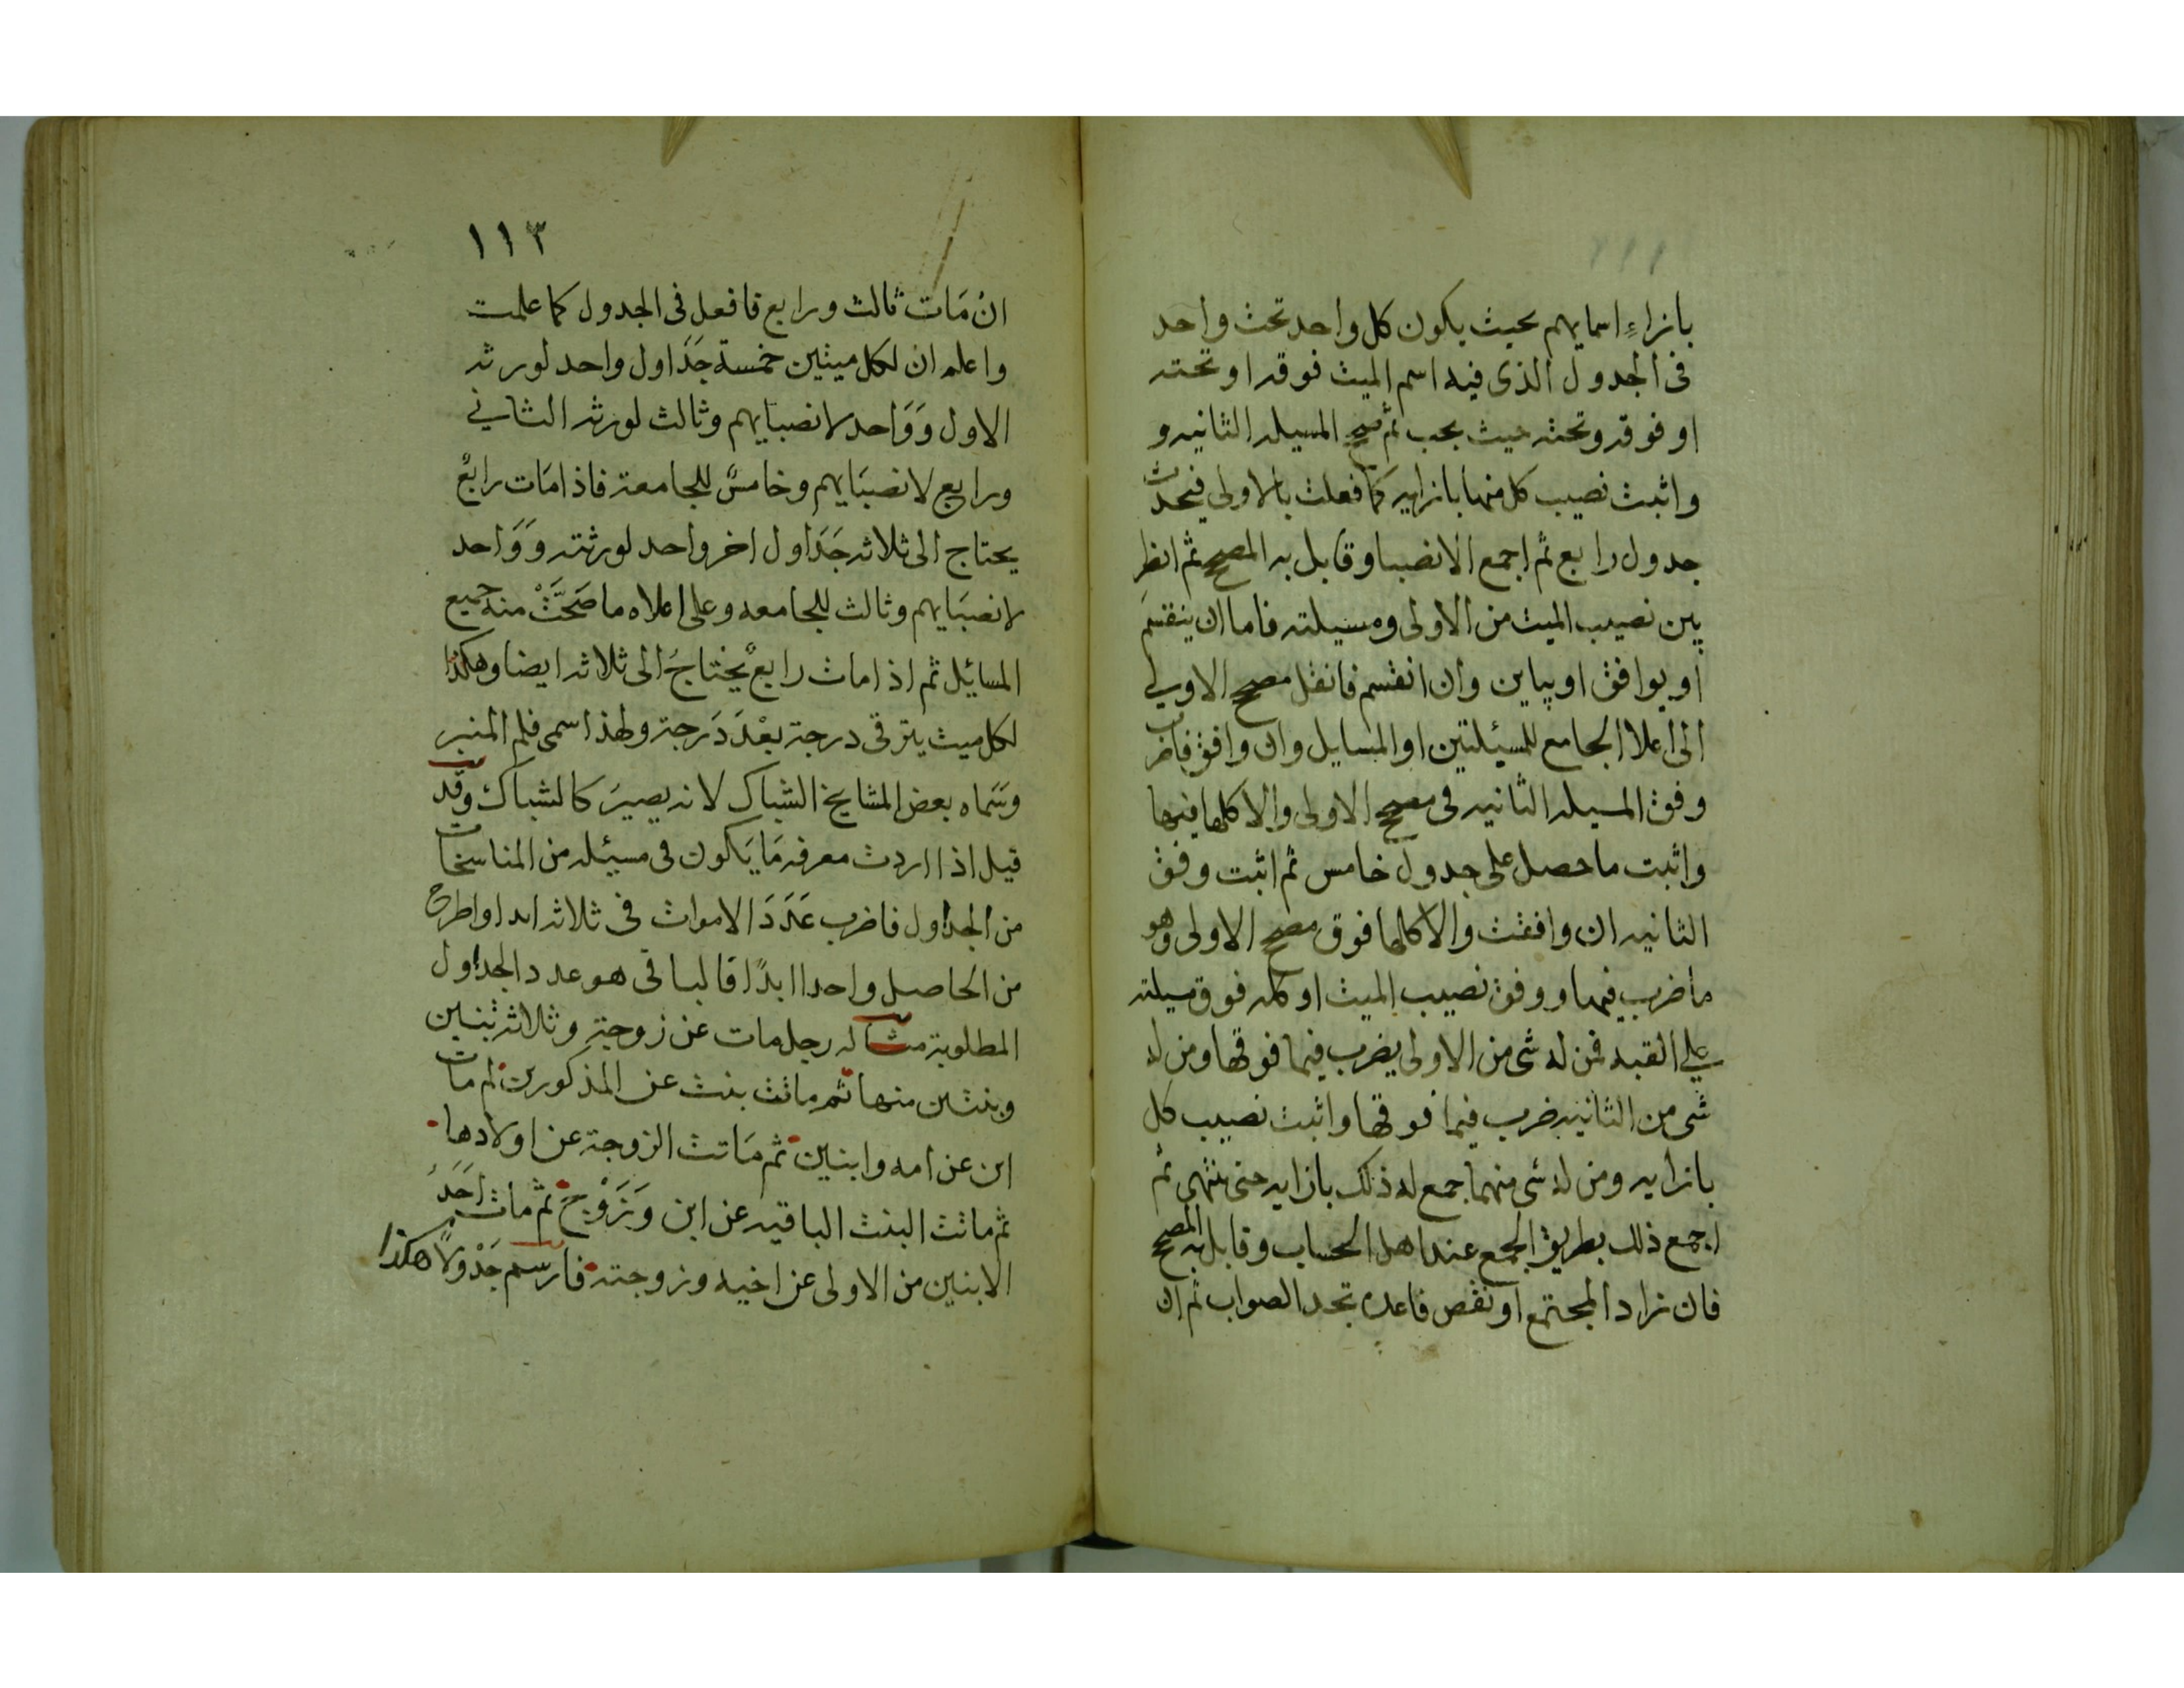 بازاءِ اسمايهم بحيث يكون كل واحد تحت واحد
فى الجدول الذى فيه اسم الميت فوقه او تحته
او فوقه وتحته حيث يجب ثم صحح المسيله الثانيه و
واثبت نصيب كل منها بازايه كما فعلت بالاولى فيحدث
جدول رابع ثم اجمع الانصبا وقابل به المصحح ثم انظر
بين نصيب الميت من الاولى ومسيلته فاما ان ينقسم
او يوافق او يباين وان انقسم فانقل مصحح الاولى
الى اعلا الجامع للمسيئلتين او المسايل وان وافق فاضرب
وفق المسيله الثانيه فى مصحح الاولى والا كلها فيها
واثبت ما حصل على جدول خامس ثم اثبت وفق
الثانيه ان وافقت والا كلها فوق مصحح الاولى وهو
ما ضرب فيها ووفق نصيب الميت او كله فوق مسيلته
على القبه فمن له شى من الاولى يضرب فيما فوقها ومن له
شى من الثانيه ضرب فيما فوقها واثبت نصيب كل
بازايه ومن له شى منهما جمع له ذلك بازايه حتى ينتهى ثم
اجمع ذلك بطريق الجمع عند اهل الحساب وقابل به المصحح
فان زاد المجتمع او نقص فاعده تجد الصواب ثم ان
١١٣
انْ مَات ثالث ورابع فافعل فى الجدول كما علمت
واعلم ان لكل ميتين خمسة جَدَاول واحد لورثه
الاول وَوَاحد لانصبايهم وثالث لورثه الثانى
ورابع لانصبَايهم وخامسٌ للجامعة فاذا مَات رابعٌ
يحتاج الى ثلاثه جَدَاول اخر واحد لورثته وَوَاحد
لانصبَايهم وثالث للجامعه وعلى اعلاه ما صَحَّتْ منه جميع
المسائيل ثم اذا مات رابعٌ يحْتاجُ الى ثلاثه ايضا وهكذا
لكل ميت يترقى درجة بعْدَ دَرجة ولهذا سمى قلم المنبر
وسَماه بعض المشايخ الشباك لانه يصيرَ كالشباك وقد
قيل اذا اردت معرفه مَا يَكون فى مسيئله من المناسخات
من الجداول فاضرب عَدَدَ الاموات فى ثلاثه ابدا واطرح
من الحاصل واحدا ابدًا فالباقى هو عدد الجداول
المطلوبة مثاله رجل مات عن زوجة وثلاثة بنين
وبنتين منها ثم ماتت بنت عن المذكورين ثم مات
ابن عن امه وابنين ثم مَاتت الزوجة عن اولادها
ثم ماتت البنت الباقيه عن ابن وَزَوْجَ ثم مات احَدَ
الابنين من الاولى عن اخيه وزوجته فارسم جَدْولاً هكذا